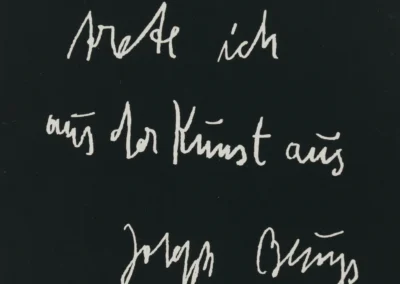 trete ich
aus der Kunst aus
Joseph Beuys